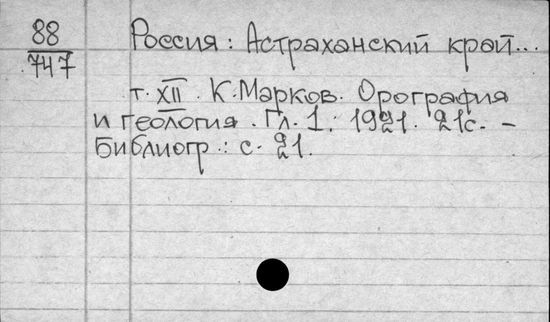 88
747
Россия: Астраханский край...
т. XII. К. Марков. Орография
и геология. Гл. 1. 1921. 21с. -
Библиогр.: с. 21.